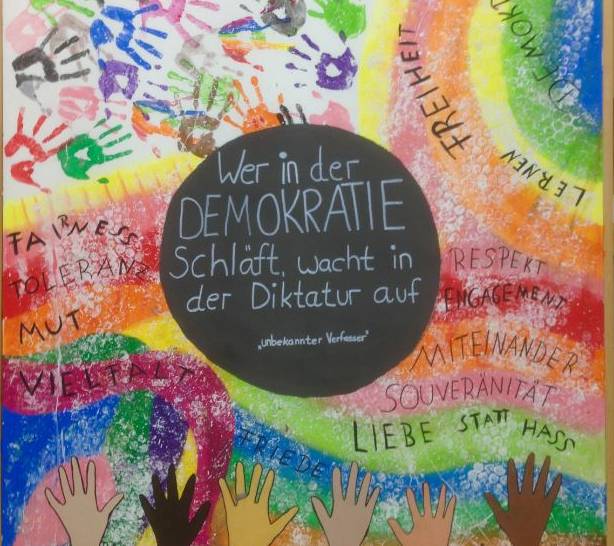 FREIHEIT
DEMOK
LERNEN
Wer in der
DEMOKRATIE
Schläft, wacht in
der Diktatur auf
„unbekannter Verfasser"
FAIRNESS
TOLERANZ
MUT
VIELFALT
RESPEKT
ENGAGEMENT
MITEINANDER
SOUVERÄNITÄT
LIEBE STATT HASS
FRIEDE